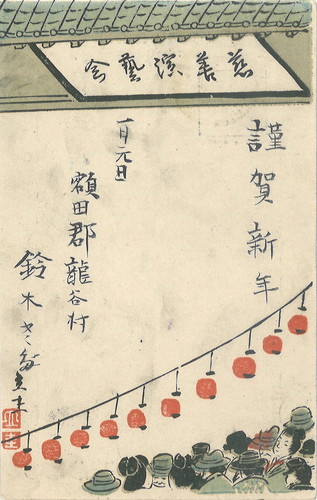 慈善演藝会
謹賀新年
一月元日
額田郡龍谷村
鈴木